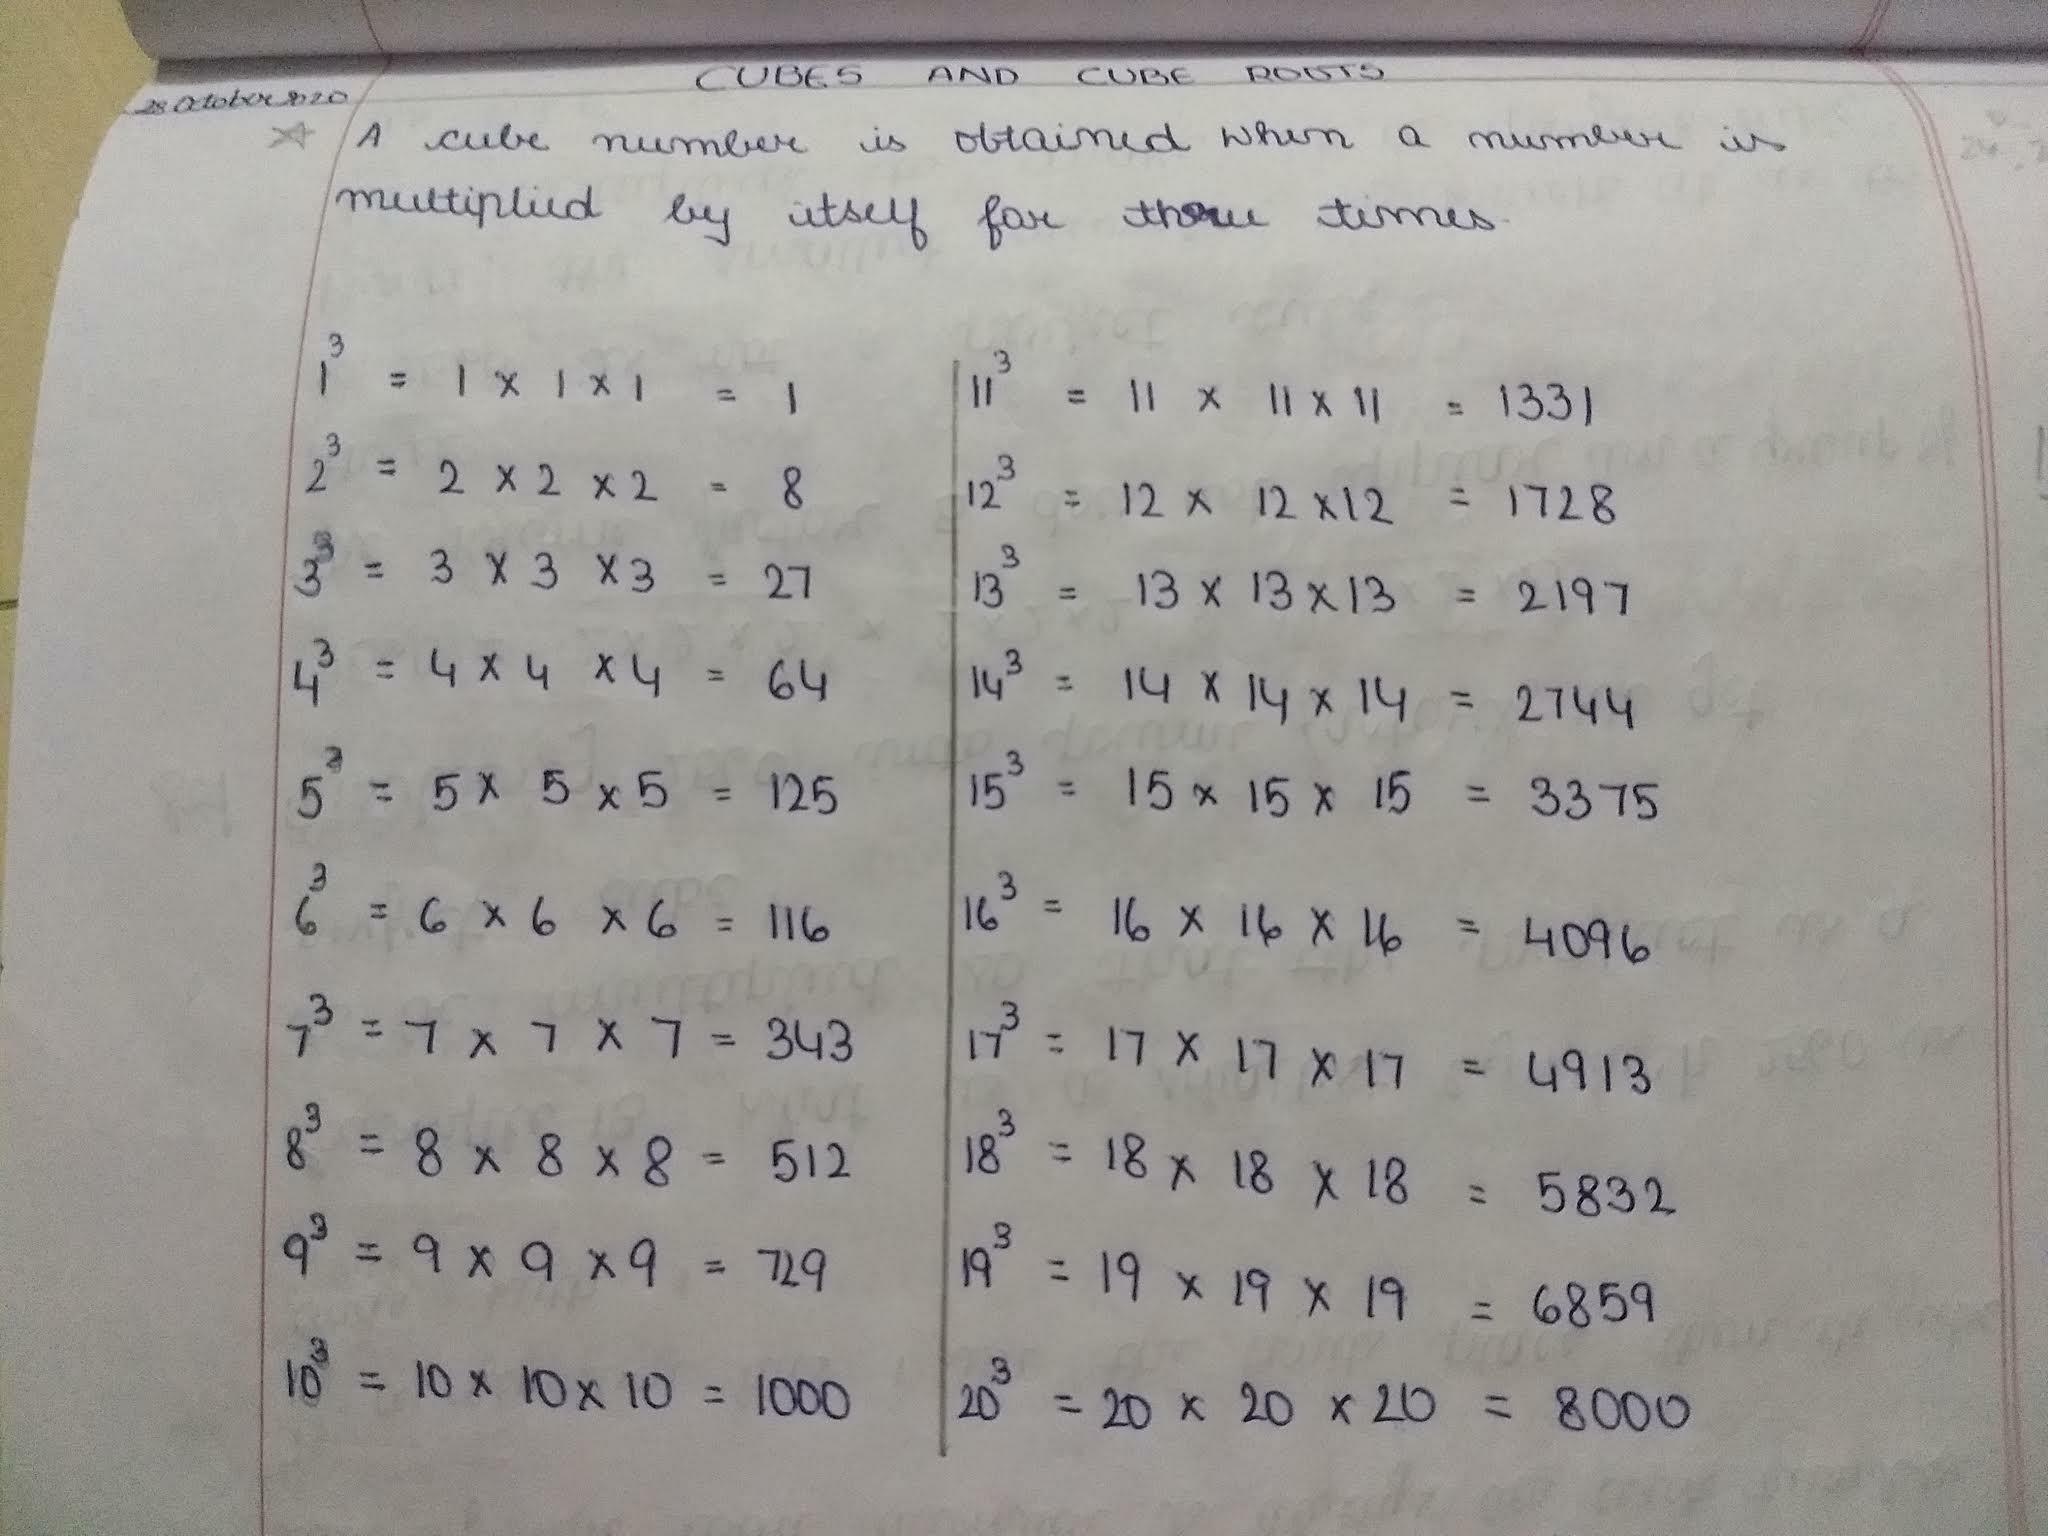 CUBES AND CUBE ROOTS
28 October 2020
A cube number is obtained when a number is
multiplied by itself for three times.
1³ = 1 x 1 x 1 = 1
2³ = 2 x 2 x 2 = 8
3³ = 3 x 3 x 3 = 27
4³ = 4 x 4 x 4 = 64
5³ = 5 x 5 x 5 = 125
6³ = 6 x 6 x 6 = 116
7³ = 7 x 7 x 7 = 343
8³ = 8 x 8 x 8 = 512
9³ = 9 x 9 x 9 = 729
10³ = 10 x 10 x 10 = 1000
11³ = 11 x 11 x 11 = 1331
12³ = 12 x 12 x 12 = 1728
13³ = 13 x 13 x 13 = 2197
14³ = 14 x 14 x 14 = 2744
15³ = 15 x 15 x 15 = 3375
16³ = 16 x 16 x 16 = 4096
17³ = 17 x 17 x 17 = 4913
18³ = 18 x 18 x 18 = 5832
19³ = 19 x 19 x 19 = 6859
20³ = 20 x 20 x 20 = 8000